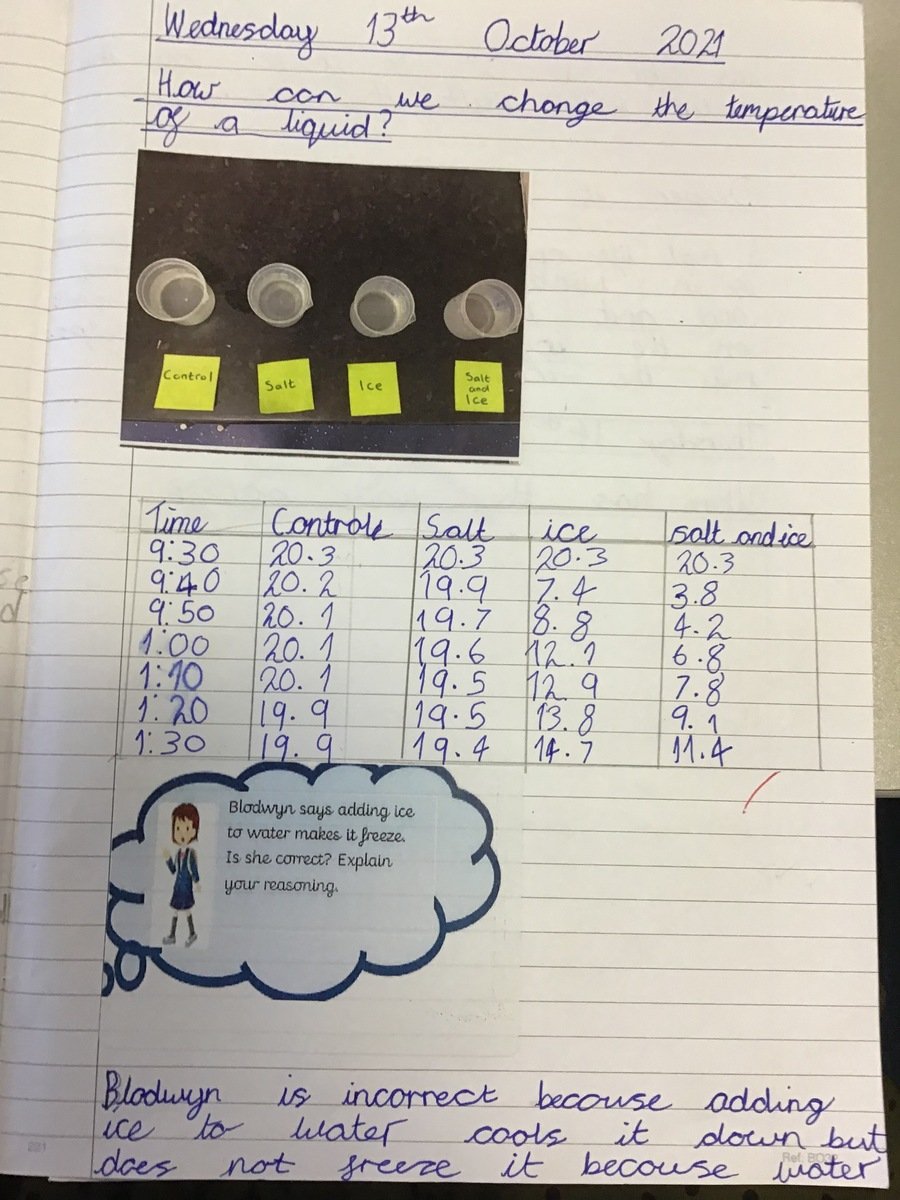 Wednesday 13th October 2021
How can we change the temperature
of a liquid?
Control Salt Ice Salt
and
Ice
Time Controle Salt ice salt and ice
9:30 20.3 20.3 20.3 20.3
9:40 20.2 19.9 7.4 3.8
9:50 20.1 19.7 8.8 4.2
1:00 20.1 19.6 12.1 6.8
1:10 20.1 19.5 12.9 7.8
1:20 19.9 19.5 13.8 9.1
1:30 19.9 19.4 14.7 11.4
Blodwyn says adding ice
to water makes it freeze.
Is she correct? Explain
your reasoning.
Blodwyn is incorrect becouse adding
ice to water cools it down but
does not freeze it becouse water